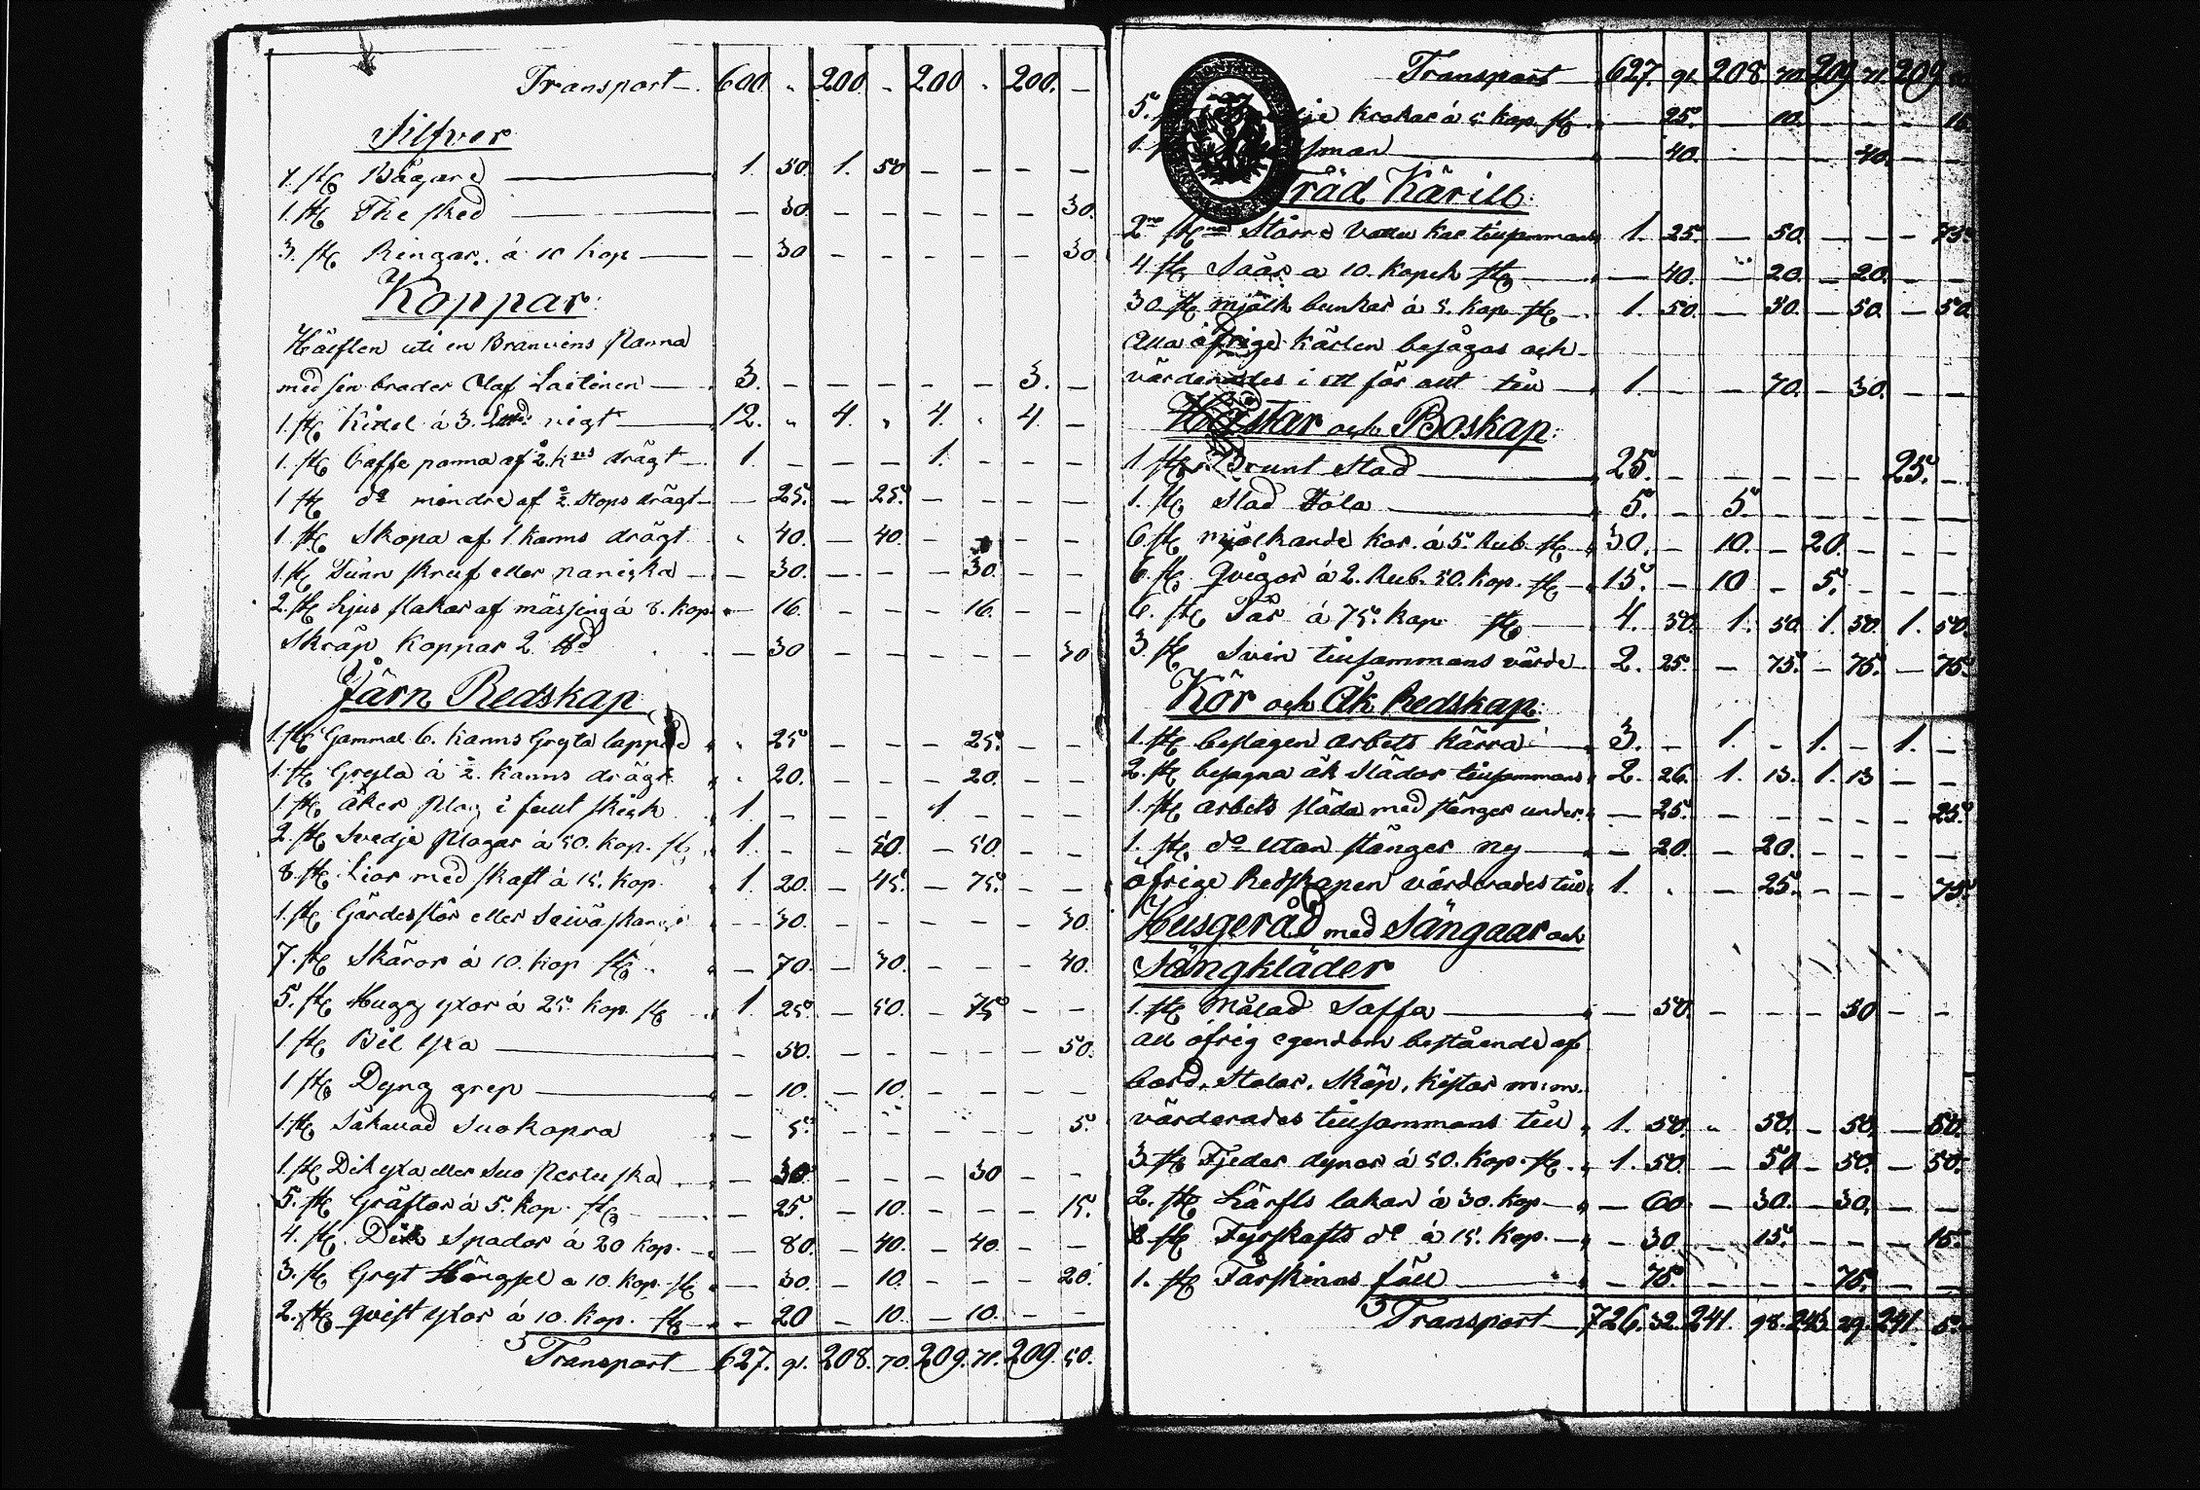 Transport 600 " 200 - 200 " 200. -
Silfver
1. st Bägare 1. 50. 1. 50 - - - -
1. st The sked - 30. - - - - - 30.
3. st Ringar. á 10 kop - 30 - - - - - 30.
Koppar:
Hälften uti en Branvins panna
med sin broder Olaf Laitinen 3. - - - - - 3. -
1. st Kittel á 3. nigt 12. " 4. " 4. " 4. -
1. st Caffe panna af 2. k:ns drägt 1. - - - 1. - - -
1 st do mindre af 2. stops drägt - 25. - 25. - - - -
1. st Skopa af 1 kanns drägt " 40. - 40. - - - -
1. st Tunn skruf eller - 30. - - - 30. - -
2. st Ljus stakar af mässing á 8. kop. - 16. - - - 16. - -
Skräp Koppar 2. - 30 - - - - - 30
Järn Redskap
1. st Gammal 6. kanns Gryta lappad " 25 - - - 25. - -
1. st Gryta á 2. kanns drägt " 20. - - - 20. - -
1. st åker plog i fullt skick 1. - - - 1 - - -
2. st Svedje plogar á 50. kop. st 1. - - 50. - 50. - -
8. st Liar med skaft á 15. kop. 1. 20. - 45. - 75. - -
1. st Gärdesstör eller - 30. - - - - - 30.
7. st Skäror á 10. kop st - 70. - 30. - - - 40.
5. st Hugg yxor á 25. kop. st 1. 25. - 50. - 75 - -
1. st Bil yxa - 50. - - - - - 50.
1 st Dyng grep - 10. - 10. - - - -
1. st Suokopra - 5. - - - - - 5.
1. st Dik yxa eller Suo - 30. - - - 30 - -
5. st Gräftor á 5. kop. st - 25. - 10. - - - 15.
4. st. Dik Spador á 20 kop. - 80. - 40. - 40. - -
3. st Gryt Hängsel a 10. kop. st - 30. - 10. - - - 20.
2. st qvist yxor á 10. kop. st - 20 - 10. - 10. - -
Transport 627. 91. 208. 70. 209. 71. 209. 50.
Transport 627. 91. 208. 70. 209 71. 209
5. krokar á 5 kop. st - 25. - 10. - - - 15
1. - 40. - - - 40. - -
Träd Kärill:
2ne st Större Vattu kar tillsammans 1. 25. - 50. - - - 75.
4 st Såår a 10. Kopek st - 40. - 20. - 20. - -
30 st mjölk bunkar á 5. kop st 1. 50. - 50. - 50. - 50.
Alla öfrige kärlen besågos och
värderades i ett för allt till 1. - - 70. - 30. - -
Hästar och Boskap:
1 st Brunt Stod 25. - - - - - 25. -
1. st Stod Fóla 5. - 5. - - - - -
6 st mjölkande kor. á 5. Rub. st 30. - 10. - 20. - - -
6. st Qvigor á 2. Rub. 50. kop. st 15. - 10 - 5. - - -
6. st Får á 75. kop st 4. 50. 1. 50. 1. 50. 1. 50.
3. st Svin tillsammans värde 2. 25. - 75. - 75. - 75.
Kör och Åk Redskap:
1. st beslagen arbets kärra 3. - 1. - 1. - 1. -
2. st besagna åk slädor tillsammans 2. 26. 1. 13. 1. 13 - -
1. st arbets släda med stänger under. - 25. - - - - - 25.
1. st, do utan stänger ny - 20. - 20. - - - -
öfrige Redskapen värderades till 1. " - 25. - - - 75.
Husgeråd med Sängar och
Sängkläder
1. st Målad Soffa - 50. - - - 50 - -
All öfrig egendom bestående af
bord, Stolar, Skåp, kistor m:m.
värderades tillsammans till 1. 50. " 50. - 50. - 50.
3. st Fjeder dynor á 50. kop. st 1. 50. - 50 - 50. - 50.
2. st Lärfts lakan á 30. kop - 60. - 30. - 30. - -
2 st Fyrskafts do á 15. kop. - 30. - 15. - - - 15.
1. st Fårskinns fäll - 75. - - - 75. - -
Transport 726. 32. 241. 98. 243. 29. 241. 5.